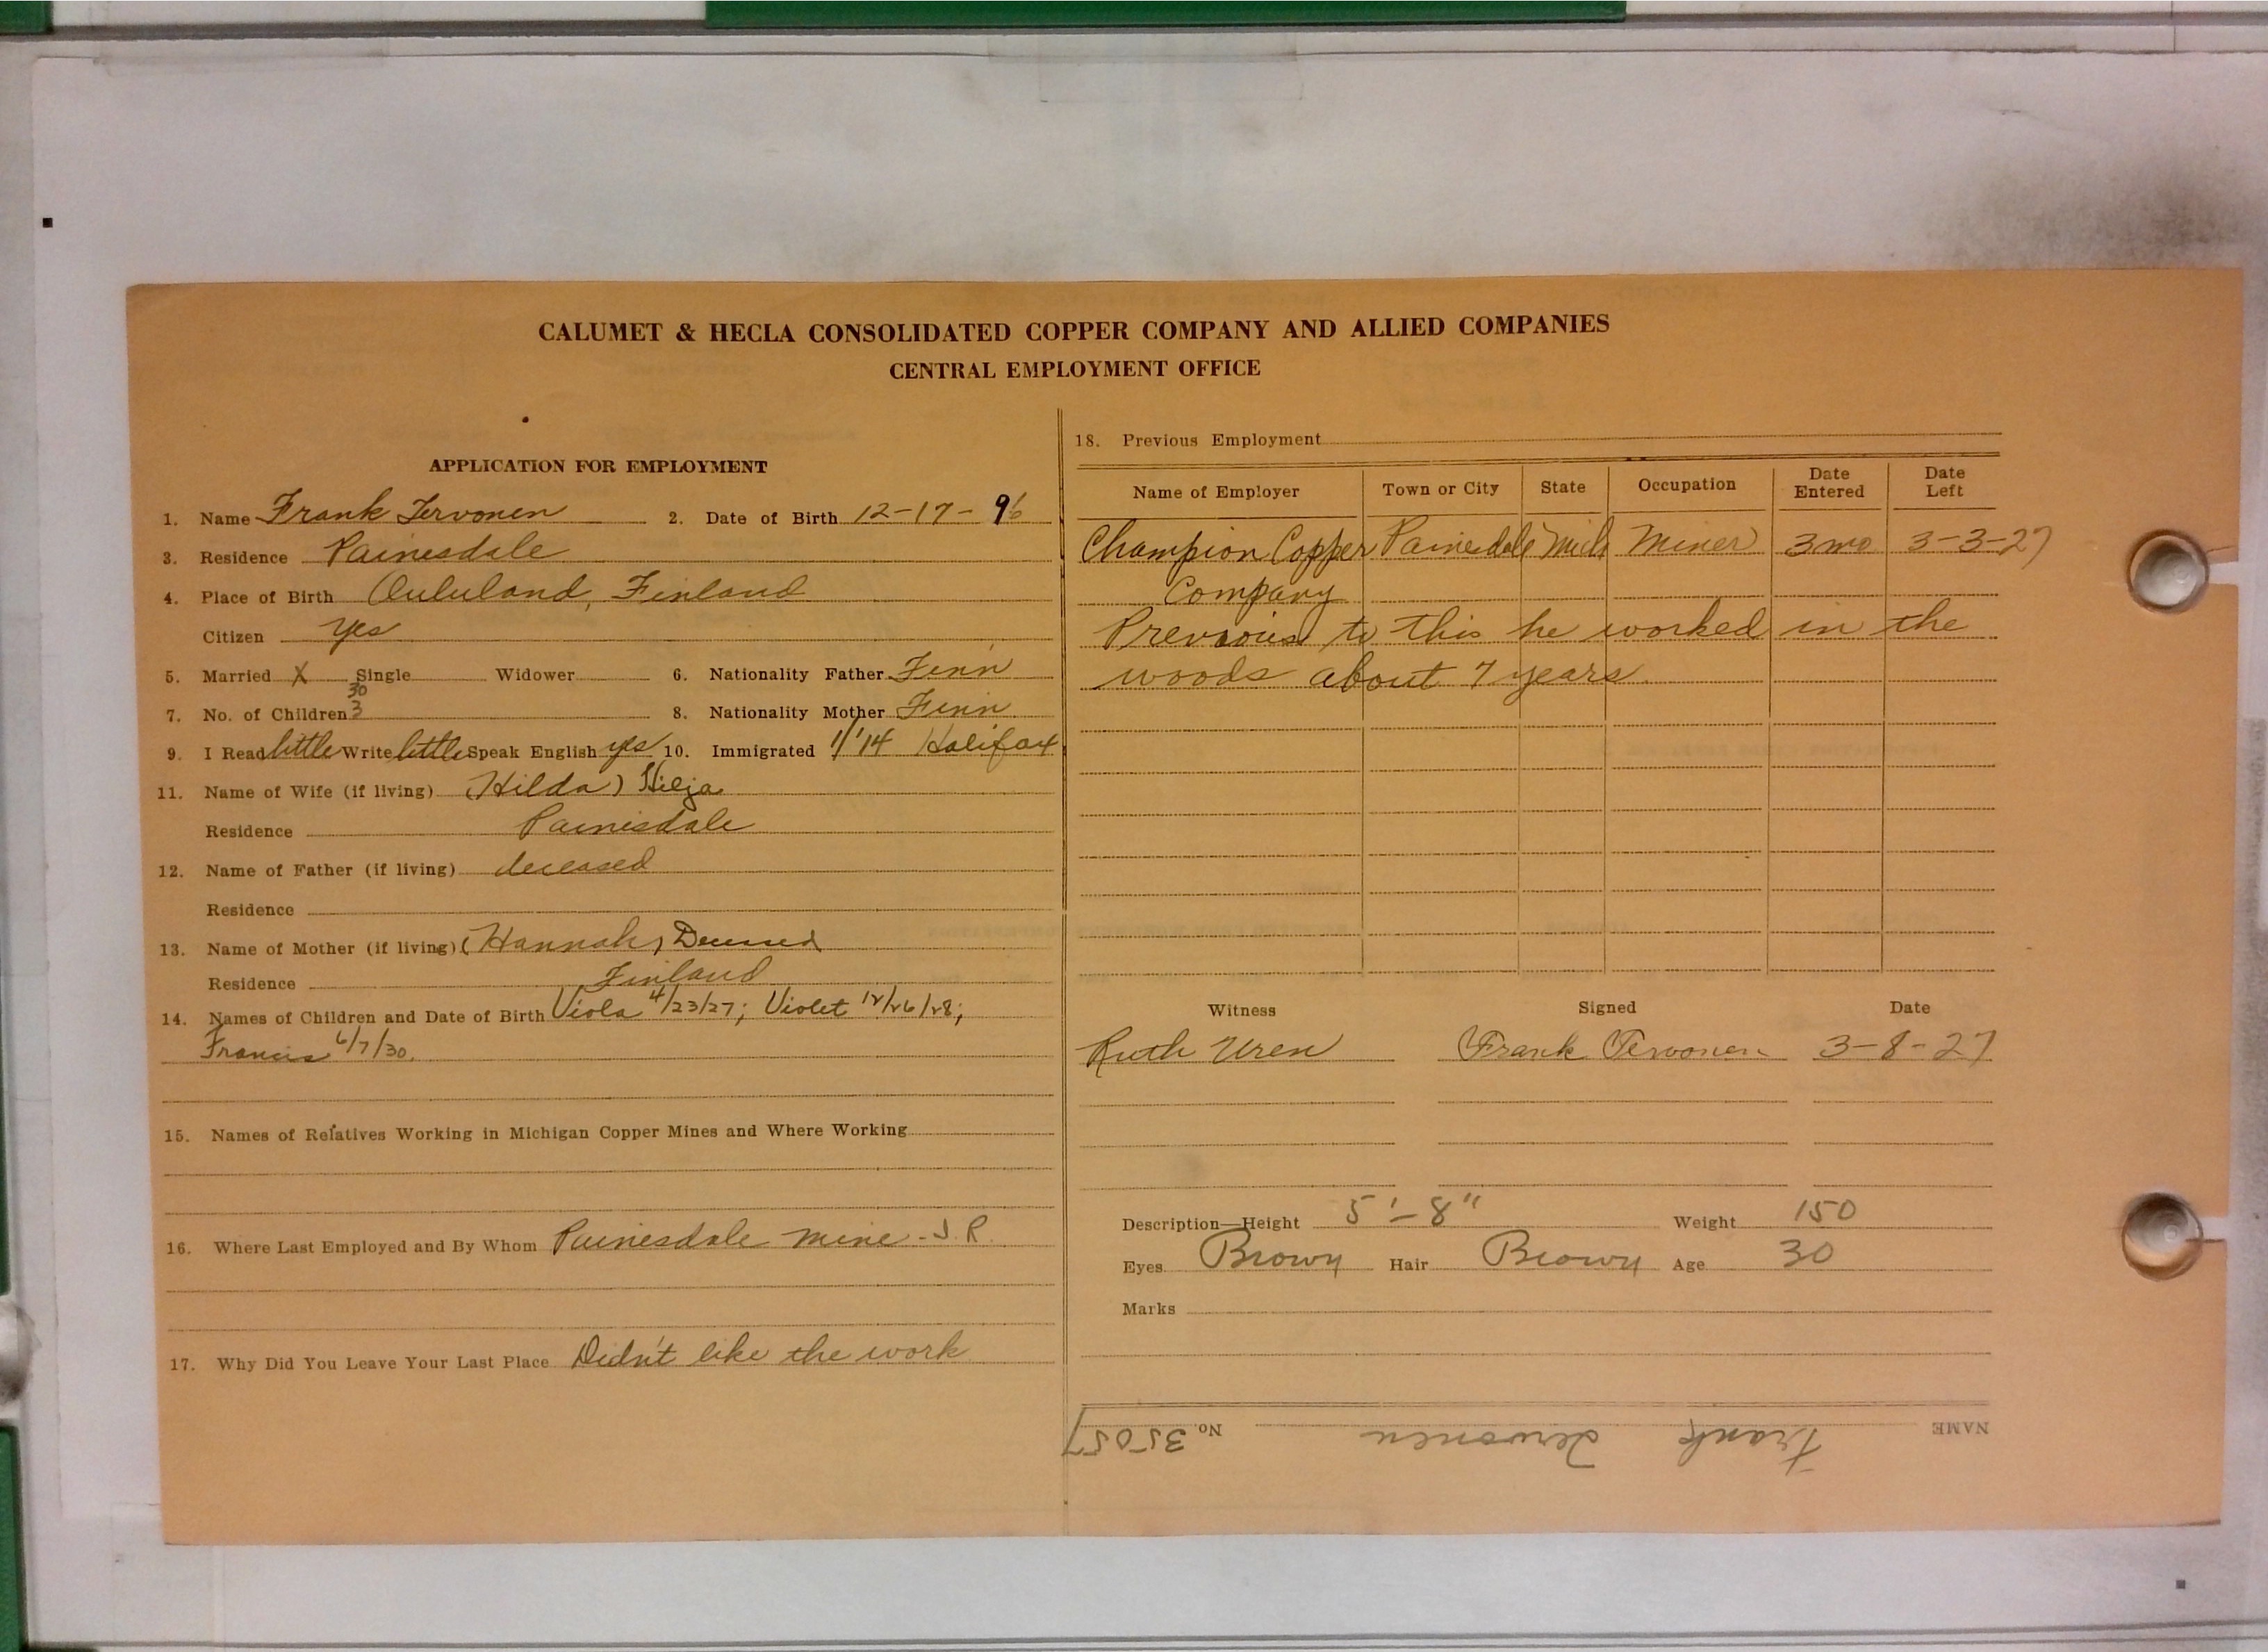 CALUMET & HECLA CONSOLIDATED COPPER COMPANY AND ALLIED COMPANIES
CENTRAL EMPLOYMENT OFFICE
APPLICATION FOR EMPLOYMENT
1. Name Frank Tervonen 2. Date of Birth 12-17-96
3. Residence Painesdale
4. Place of Birth Oululand, Finland
Citizen yes
5. Married X Single Widower 6. Nationality Father Finn
30
7. No. of Children 3 8. Nationality Mother Finn
9. I Read little Write little Speak English yes 10. Immigrated 1/'14 Halifax
11. Name of Wife (if living) (Hilda) Hilja
Residence Painesdale
12. Name of Father (if living) deceased
Residence
13. Name of Mother (if living) (Hannah) Deceased
Residence Finland
14. Names of Children and Date of Birth Viola 4/23/27; Violet 12/26/28;
Francis 6/7/30.
15. Names of Relatives Working in Michigan Copper Mines and Where Working
16. Where Last Employed and By Whom Painesdale mine - J.R.
17. Why Did You Leave Your Last Place Didn't like the work
18. Previous Employment
Name of Employer Town or City State Occupation Date Entered Date Left
Champion Copper Painesdale Mich Miner 3 mo 3-3-27
Company
Previous to this he worked in the
woods about 7 years
Witness Signed Date
Ruth Uren Frank Tervonen 3-8-27
Description—Height 5'-8" Weight 150
Eyes Brown Hair Brown Age 30
Marks
NAME Frank Tervonen No. 35057